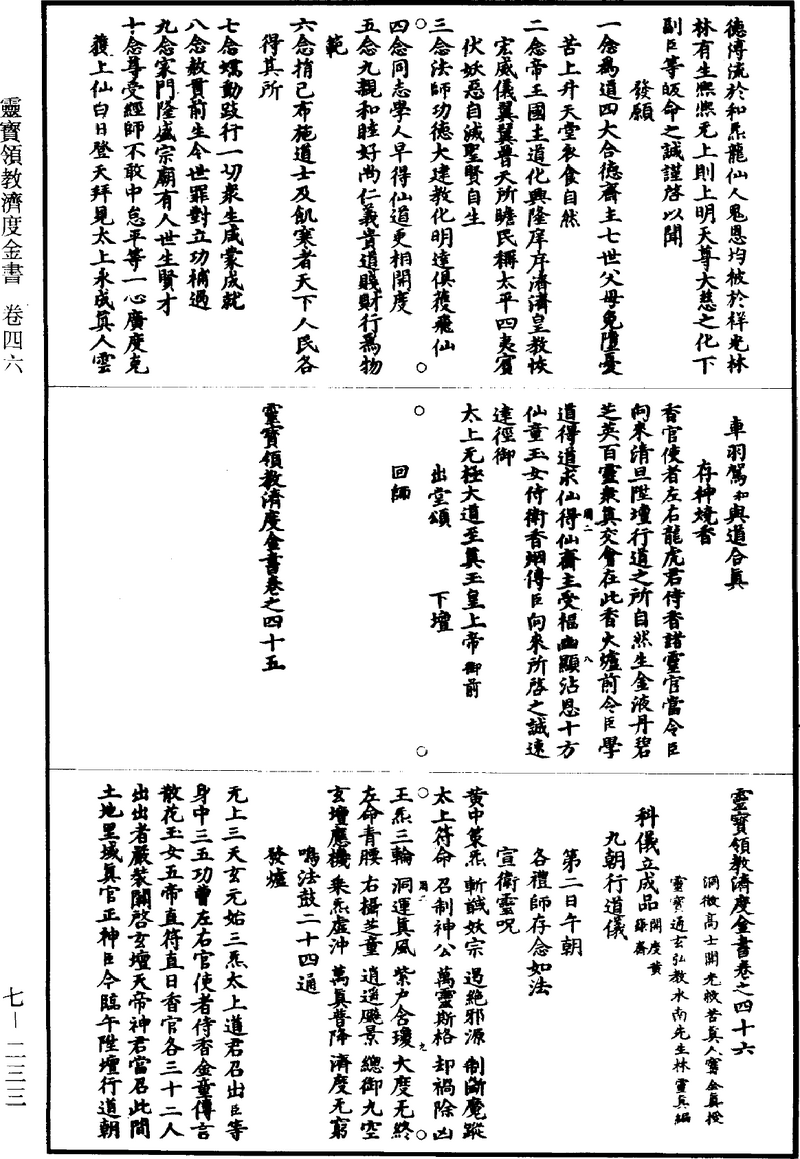 德溥流於和炁龍仙人鬼恩均被於祥光林
林有生熙熙无上則上明天尊大慈之化下
副臣等皈命之誠謹啓以聞
發願
一念爲道四大合德齋主七世父母免墮憂
苦上升天堂衣食自然
二念帝王國主道化興隆庠序濟濟皇教恢
宏威儀翼翼普天所瞻民稱太平四夷賓
伏妖惡自滅聖賢自生
三念法師功德大建教化明達俱獲飛仙
四念同志學人早得仙道更相開度
五念九親和睦好尚仁義貴道賤財行爲物
範
六念損己布施道士及飢寒者天下人民各
得其所
七念蠕動跂行一切衆生咸蒙成就
八念赦貰前生今世罪對立功補過
九念家門隆盛宗廟有人世生賢才
十念尊受經師不敢中怠平等一心廣度克
獲上仙白日登天拜見太上永成眞人雲
車羽駕和與道合眞
存神燒香
香官使者左右龍虎君侍香諸靈官當令臣
向來清旦陞壇行道之所自然生金液丹碧
芝英百靈衆眞交會在此香火爐前令臣學
道得道求仙得仙齋主受福幽顯沾恩十方
仙童玉女侍衛香烟傳臣向來所啓之誠速
達徑御
太上无極大道至眞玉皇上帝御前
出堂頌 下壇
回師
靈寶領教濟度金書卷之四十五
靈寶領教濟度金書卷之四十六
洞微高士開光救苦眞人甯全眞授
靈寶通玄弘教水南先生林靈眞編
科儀立成品 開度黃籙齋
九朝行道儀
第二日午朝
各禮師存念如法
宣衛靈呪
黃中策炁 斬馘妖宗 遏絕邪源 制斷魔蹤
太上符命 召制神公 萬靈斯格 却禍除凶
王炁三輪 洞運眞風 紫戶含瓊 大度无終
左命青腰 右攝芝童 逍遥飈景 總御九空
玄壇應機 乘炁虛沖 萬眞普降 濟度无窮
鳴法鼓二十四通
發爐
无上三天玄元始三炁太上道君召出臣等
身中三五功曹左右官使者侍香金童傳言
散花玉女五帝直符直日香官各三十二人
出出者嚴裝關啓玄壇天帝神君當召此間
土地里域眞官正神臣今臨午陞壇行道朝
靈寶領教濟度金書 卷四六
七—二三三